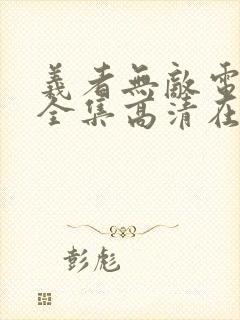 義者無敵電
全集高清在
彭彪